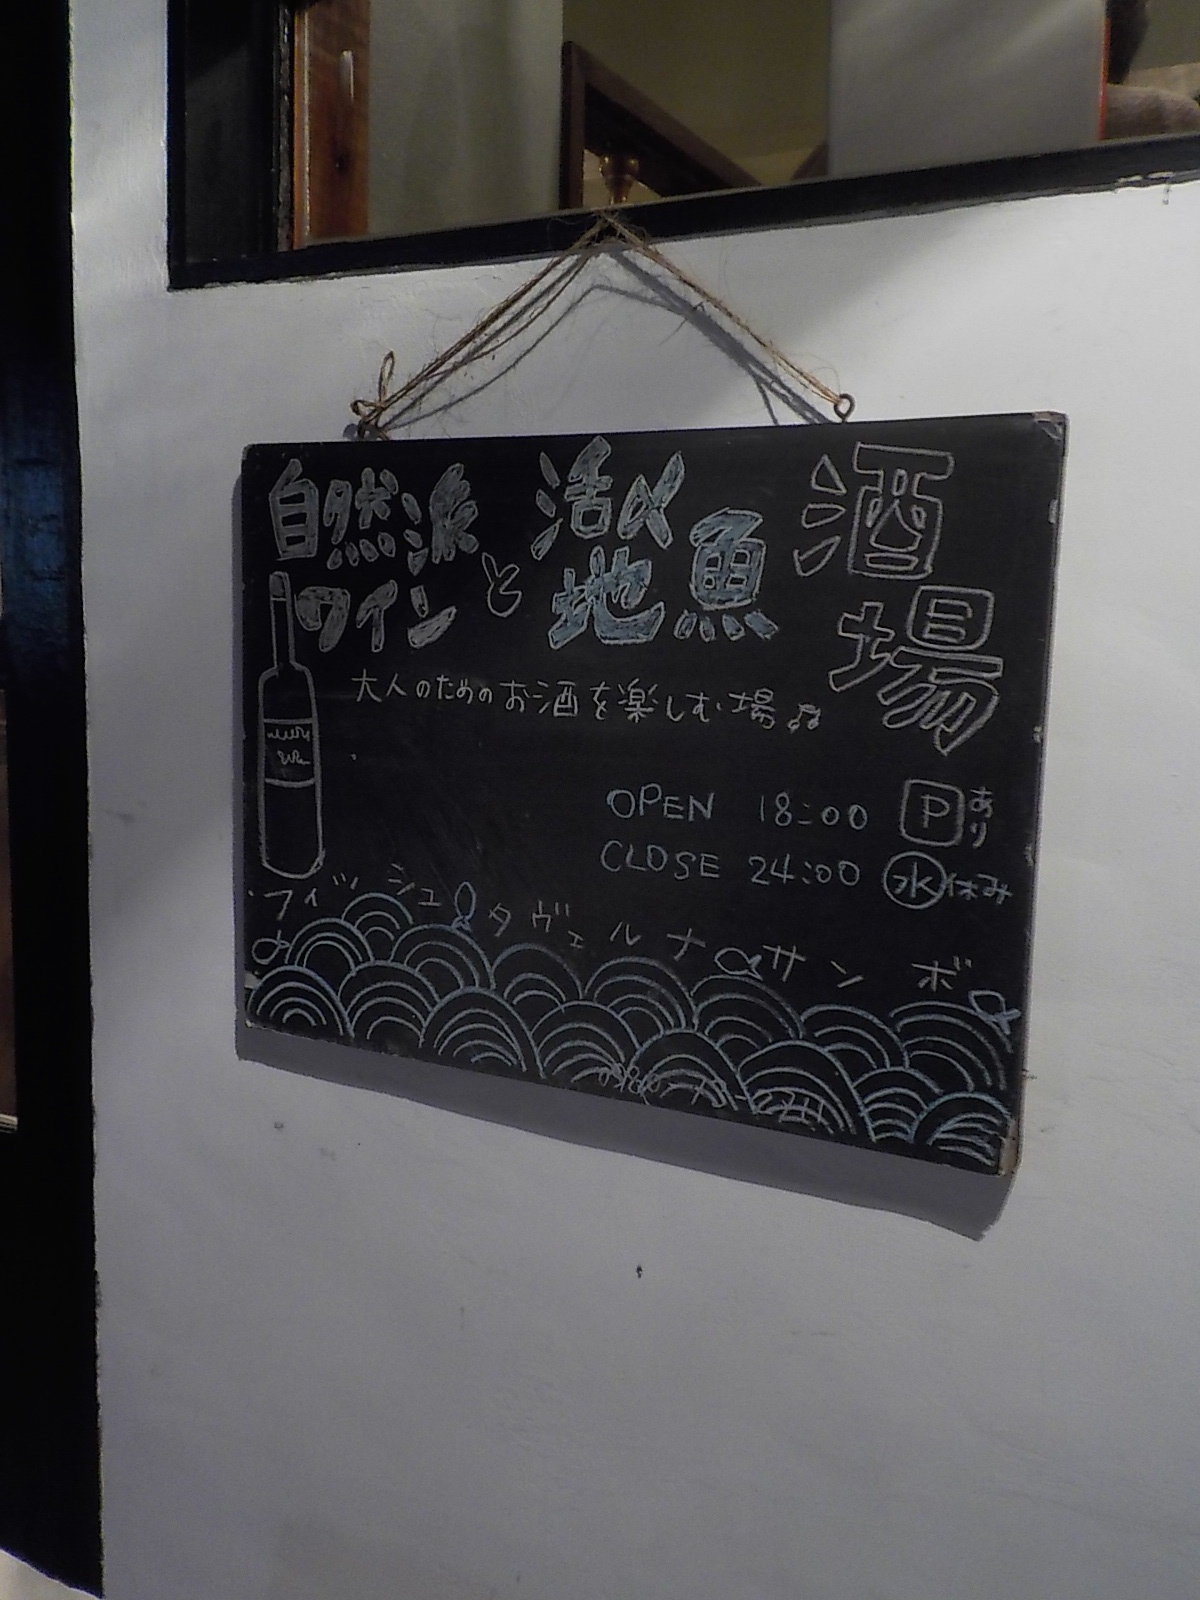 自然派
ワイン
と
活〆
地魚
酒場
大人のためのお酒を楽しむ場♫
OPEN 18:00
CLOSE 24:00
P あり
水 休み
フィッシュタヴェルナサンボ